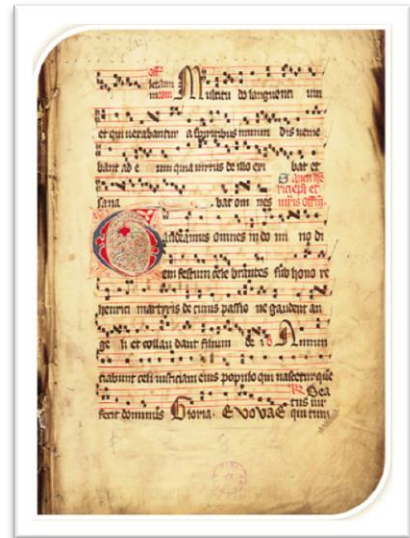 Multitu do languenti um
et qui uexabantur a spiritibus inmun dis uenie
bant ad e um quia uirtus de illo exi bat et
sana bat om nes
Gaudeamus omnes in do mi no di
em festum cele brantes sub hono re
henrici martyris de cuius passio ne gaudent an
ge li et collau dant filium de i Annun
ciabunt celi iusticiam eius populo qui nascetur que
Bea
tus uir
fecit dominus Gloria. EVOVAE qui tim